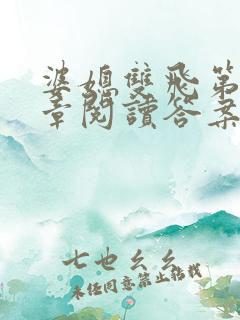 婆媳雙飛第
章閱讀答案
七也幺幺
未经同意禁止转载